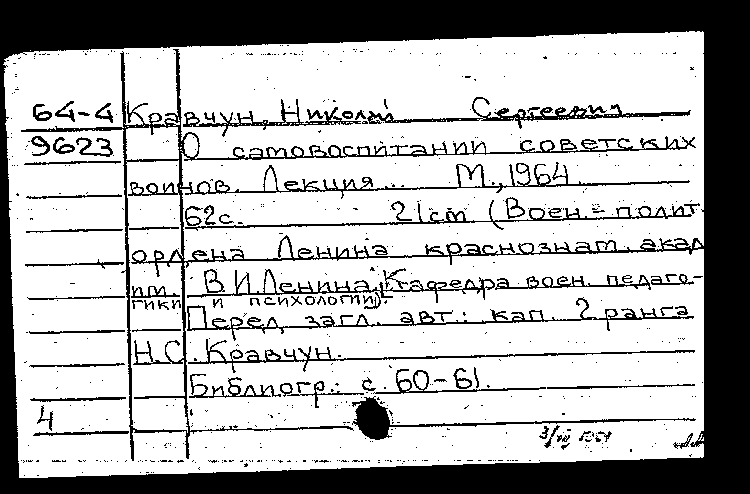 64-4 Кравчун, Николай Сергеевич
9623 О самовоспитании советских
воинов. Лекция... М., 1964
62с. 21cm (Воен.=полит.
ордена Ленина краснознам. акад
им. В.И.Ленина. Кафедра воен. педаго-
гики и психологии).
Перед загл. авт.: кап. 2 ранга
Н.С. Кравчун.
Библиогр.: с. 60-61.
4